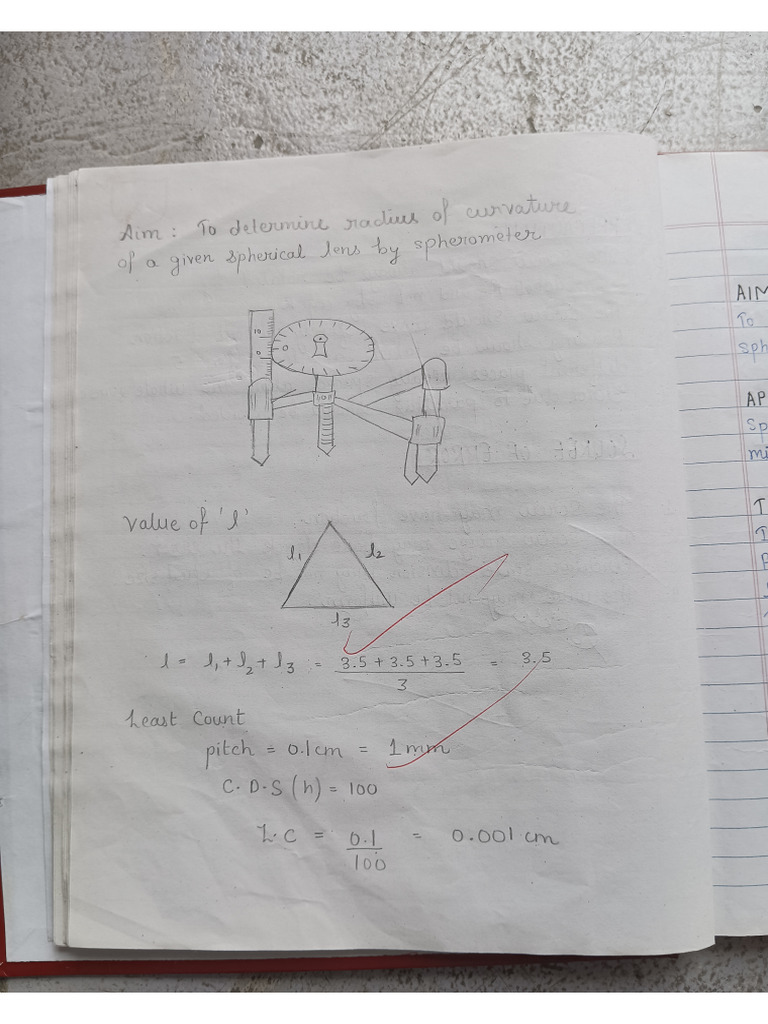 Aim : To determine radius of curvature
of a given spherical lens by spherometer
10
0
0
value of 'l'
l1 l2
l3
l = l1 + l2 + l3 = 3.5 + 3.5 + 3.5 / 3 = 3.5
Least Count
pitch = 0.1 cm = 1 mm
C.D.S (h) = 100
L.C = 0.1 / 100 = 0.001 cm
AIM
To
sph
AP
Sp
mi
T
I